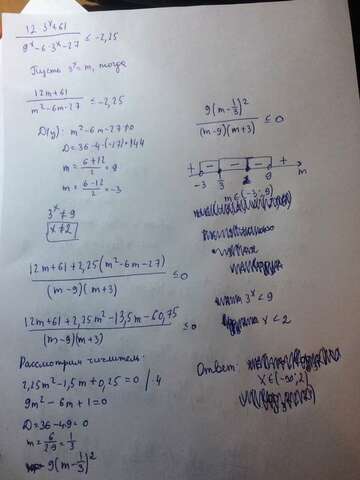 (12·3ˣ+61)/(9ˣ-6·3ˣ-27) ≤ -2,25
Пусть 3ˣ=m, тогда
(12m+61)/(m²-6m-27) ≤ -2,25
D(y): m²-6m-27≠0
D=36-4·(-27)=144
m=(6+12)/2=9
m=(6-12)/2=-3
3ˣ≠9
x≠2
(12m+61+2,25(m²-6m-27))/((m-9)(m+3)) ≤0
(12m+61+2,25m²-13,5m-60,75)/((m-9)(m+3)) ≤0
Рассмотрим числитель:
2,25m²-1,5m+0,25=0 /·4
9m²-6m+1=0
D=36-4·9=0
m=6/(2·9)=1/3
9(m-1/3)²
(9(m-1/3)²)/((m-9)(m+3)) ≤0
+ - - - +
-3 9 m
m∈(-3;9)
3ˣ<9
x<2
Ответ:
x∈(-∞;2)